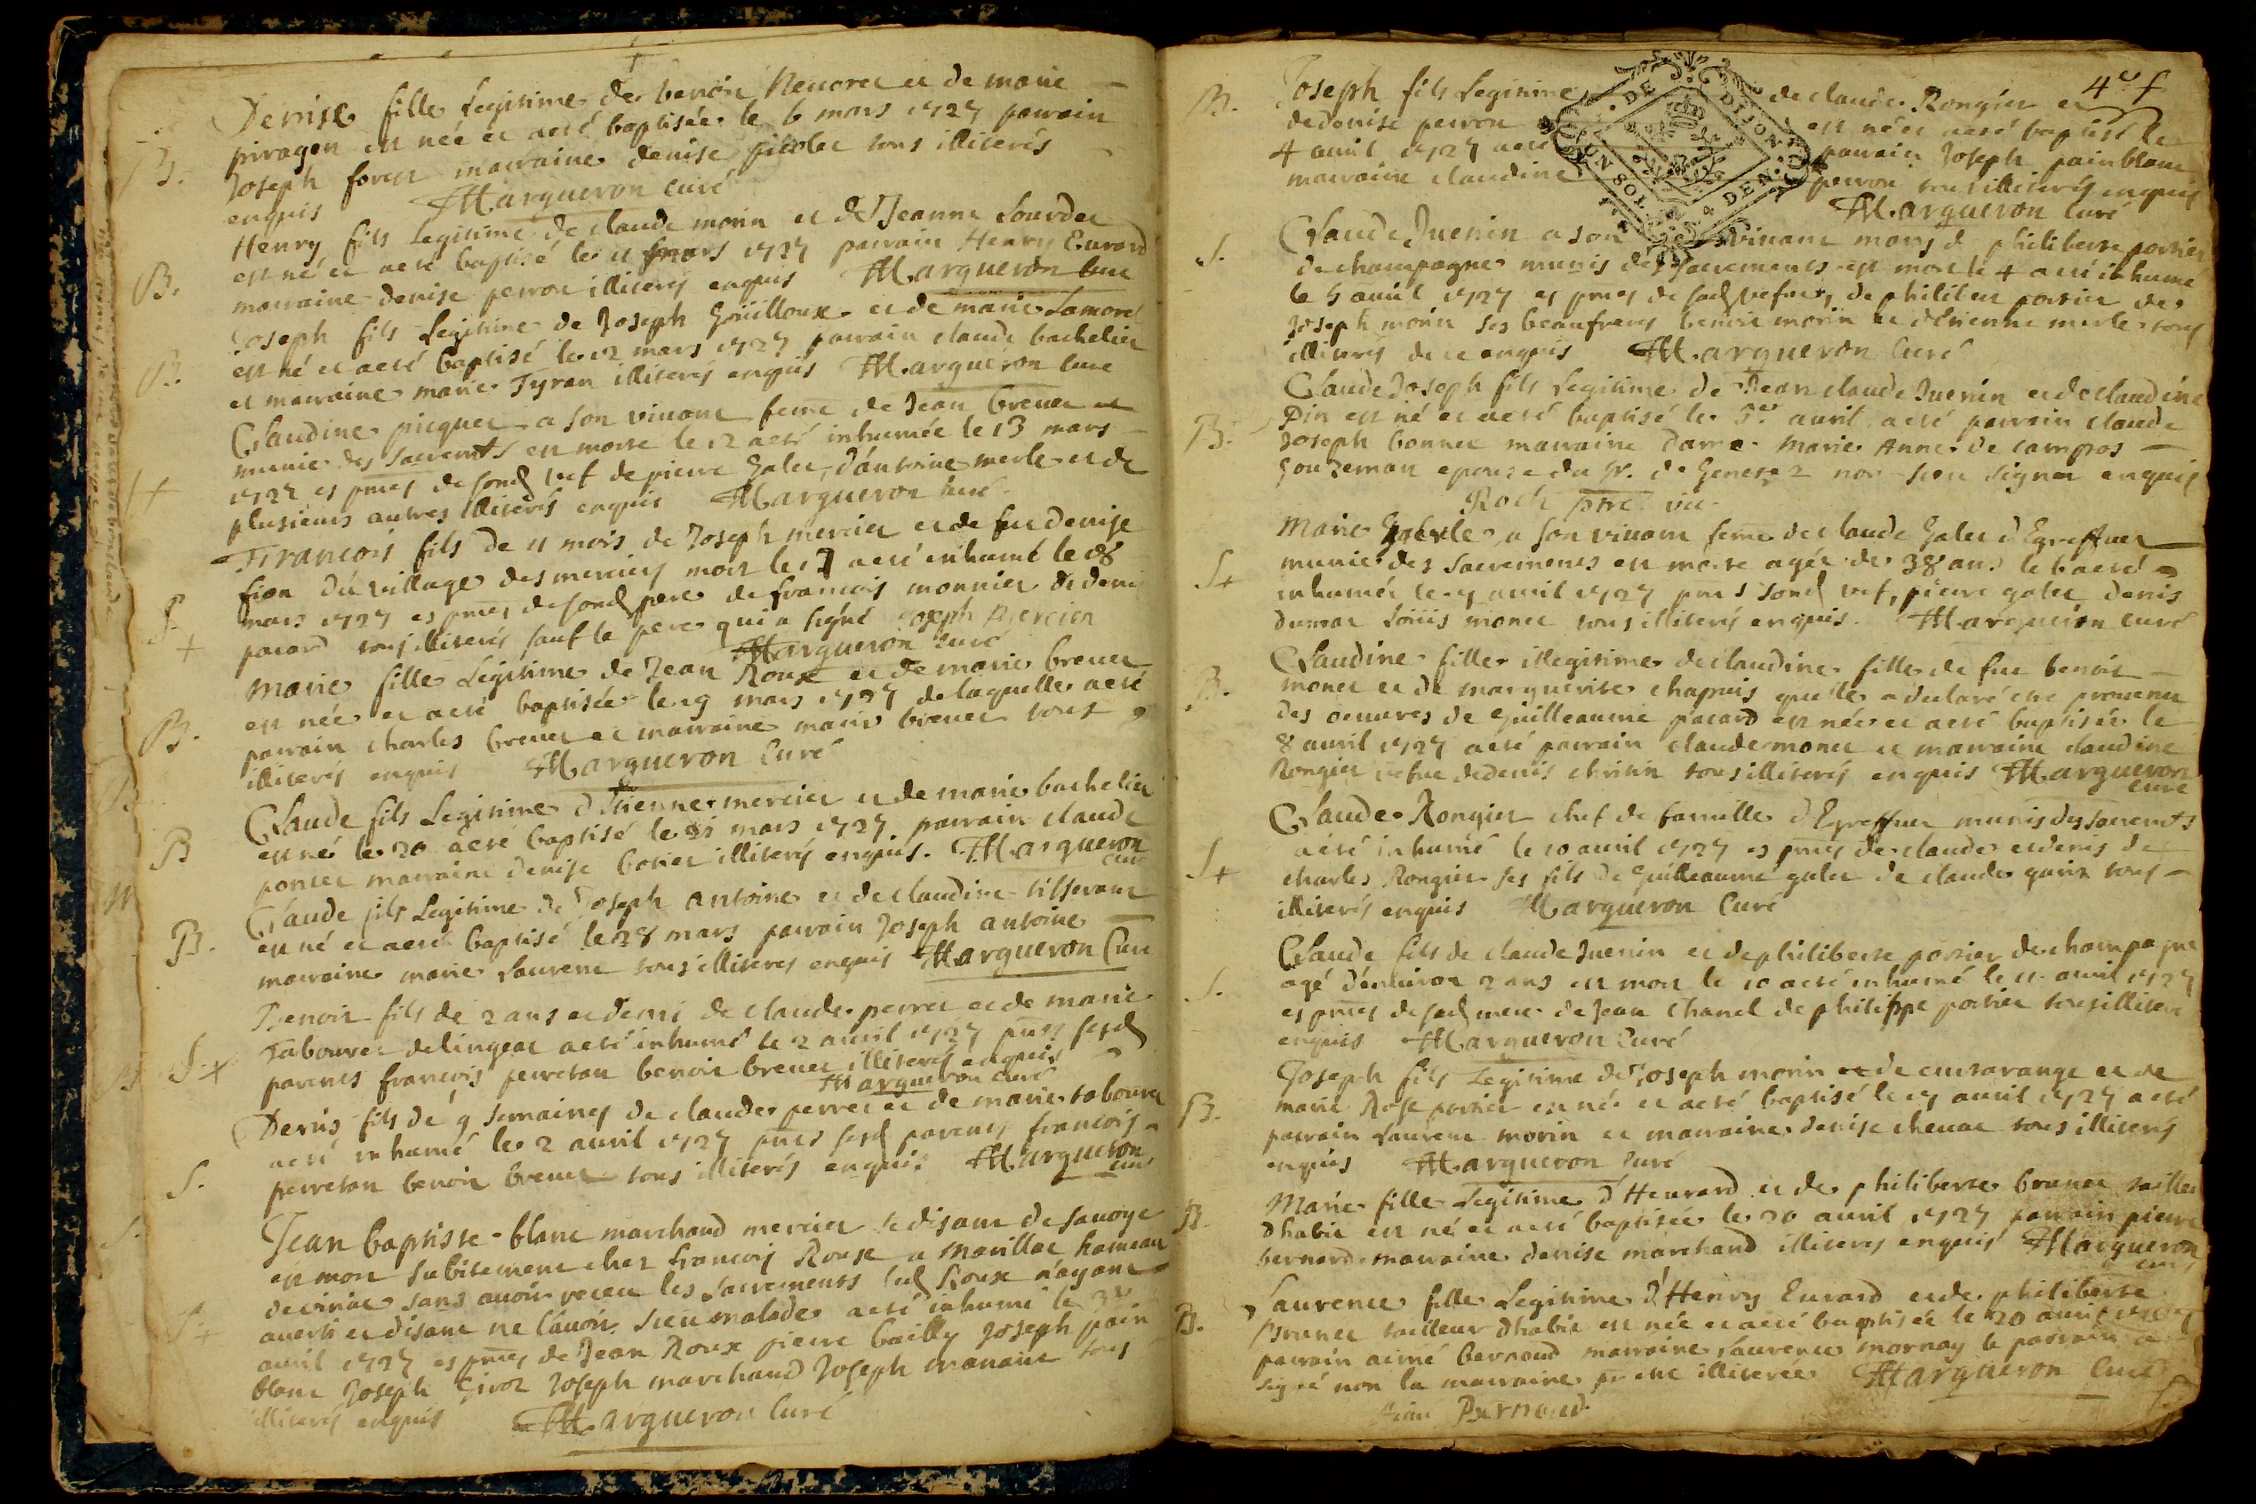 Denise fille legitime de benoir et de marie
piragon est née et aeté baptisée le 6 mars 1727 parrain
B.
Joseph forest marraine denise tous illiterés
enquis Margueron curé
Henry fils legitime de claude morin et de Jeanne Lourdet
B.
est né et aeté baptisé le 11 mars 1727 parrain Henry Eurard
marraine denise perron illiterés enquis Margueron curé
Joseph fils legitime de Joseph Guilloux et de marie Lamoret
B.
est né et aeté baptisé le 12 mars 1727 parrain claude bachelier
et marraine marie Tyran illiterés enquis Margueron curé
Claudine picquet a son vivant feme de Jean brevet
munie des sacremts est morte le 12 aeté inhumée le 13 mars
S+
1727 es pntes de sond vef de pierre Galet, d'antoine merle et de
plusieurs autres illiterés enquis Margueron curé
Francois fils de 11 mois de Joseph mercier et de fue denise
fion du village des merciers mort le 17 aeté inhumé le 18
S+
mars 1727 es pntes de sond pere de francois monnier de denis
pacard tous illiterés sauf le pere qui a signé Joseph Mercier
Margueron curé
marie fille legitime de Jean Roux et de marie brevet
est née et aeté baptisée le 19 mars 1727 de laquelle aeté
B.
parrain charles brevet et marraine marie brevet tous
illiterés enquis Margueron Curé
Claude fils legitime d'Etienne mercier et de marie bachelier
B
est né le 20 aeté baptisé le 21 mars 1727 parrain claude
poncet marraine denise illiterés enquis. Margueron
curé
Claude fils legitime de Joseph antoine et de claudine tisserant
B.
est né et aeté baptisé le 28 mars parrain Joseph antoine
marraine marie Laurent tous illiterés enquis Margueron Curé
Benoit fils de 2 ans et demi de claude perret et de marie
S+
Tabouret delingeat aeté inhumé le 2 avril 1727 pnts sesd
parents francois perretan benoit brevet illiterés enquis
Margueron curé
Denis fils de 9 semaines de claude perret et de marie tabouret
aeté inhumé le 2 avril 1727 pnts sesd parents francois
S.
perretan benoit brevet tous illiterés enquis Margueron
curé
Jean baptiste blanc marchand mercier se disant de savoye
est mort subitement chez francois Roux a Marillat hameau
deviriat sans avoir receu les sacrements led Roux n'ayant
S+
averti et disant ne l'avoir sceu malade aeté inhumé le 3e
avril 1727 es pntes de Jean Roux pierre bailly Joseph pain
blanc Joseph Girod Joseph marchand Joseph tous
illiterés enquis Margueron Curé
4e f
DE DIJON
UN SOL 4 DEN.
B.
Joseph fils legitime de claude Rongier et
de denise perron est né et aeté baptisé le
4 avril 1727 aeté parrain Joseph painblanc
marraine claudine perron tous illiterés enquis
Margueron Curé
S.
Claude Juenin a son vivant mary d philiberte portier
de champagne munis des sacrements est mort le 4 aeté inhumé
le 5 avril 1727 es pntes de sad vefue, de philibert portier de
Joseph morin ses beaufreres benoit morin et d'etienne merle tous
illiterés de ce enquis Margueron Curé
Claude Joseph fils legitime de Jean claude Juenin et de claudine
B.
Pin est né et aeté baptisé le 5e avril aeté parrain claude
Joseph bonnet marraine dame marie Anne de campros
Gouzeman epouse du Sr. de non sceu signer enquis
Roch ptre vic
Marie a son vivant feme de claude Galet d'Egreffuet
S+
munie des sacrements est morte agée de 38 ans le 6 aeté
inhumée le 7 avril 1727 pnts sond vef, pierre galet denis
dumar Loüis monet tous illiterés enquis. Margueron curé
Claudine fille illegitime de claudine fille de fue benoit
B.
monet et de marguerite chapuis qu'elle a declaré etre provenue
des oeuvres de Guilleaume pacard est née et aeté baptisée le
8 avril 1727 aeté parrain claude monet et marraine claudine
Rongier vefue de denis christin tous illiterés enquis Margueron
curé
Claude Rongier chef de famille d'Egreffuet munis des sacremts
S+
aeté inhumé le 10 avril 1727 es pntes de claude et denis de
charles Rongier ses fils de Guilleaume galet de claude garin tous
illiterés enquis Margueron Curé
Claude fils de claude Juenin et de philiberte portier de champagne
S.
agé d'environ 2 ans est mort le 10 aeté inhumé le 11 avril 1727
es pntes de sad mere de Jean Chanel de philippe portier tous illiterés
enquis Margueron Curé
Joseph fils legitime de Joseph morin de cuisarange et de
B.
marie Rose portier est né et aeté baptisé le 17 avril 1727 aeté
parrain Laurent morin et marraine denise chevat tous illiterés
enquis Margueron curé
B
Marie fille legitime d'Heurard et de philiberte brunet tailleur
dhabit est né et aeté baptisée le 20 avril 1727 parrain pierre
bernard marraine denise marchand illiterés enquis Margueron
curé
Laurence fille legitime d'Henry Eurard et de philiberte
B.
brunet tailleur dhabit est née et aeté baptisée le 20 avril 1727
parrain aimé bernoud marraine Laurence mornay le parrain a
signé non la marraine illiterée Margueron Curé
Bernoud